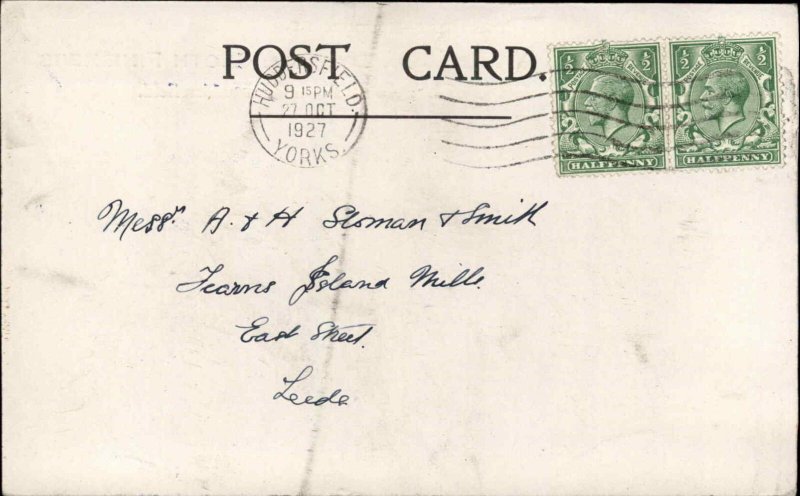 POST CARD.
HUDDERSFIELD.
9 15PM
27 OCT
1927
YORKS.
1/2 1/2
POSTAGE REVENUE
HALFPENNY
1/2 1/2
POSTAGE REVENUE
HALFPENNY
Messrs A. & H Sloman & Smith
Fearns Island Mills.
East Street.
Leeds